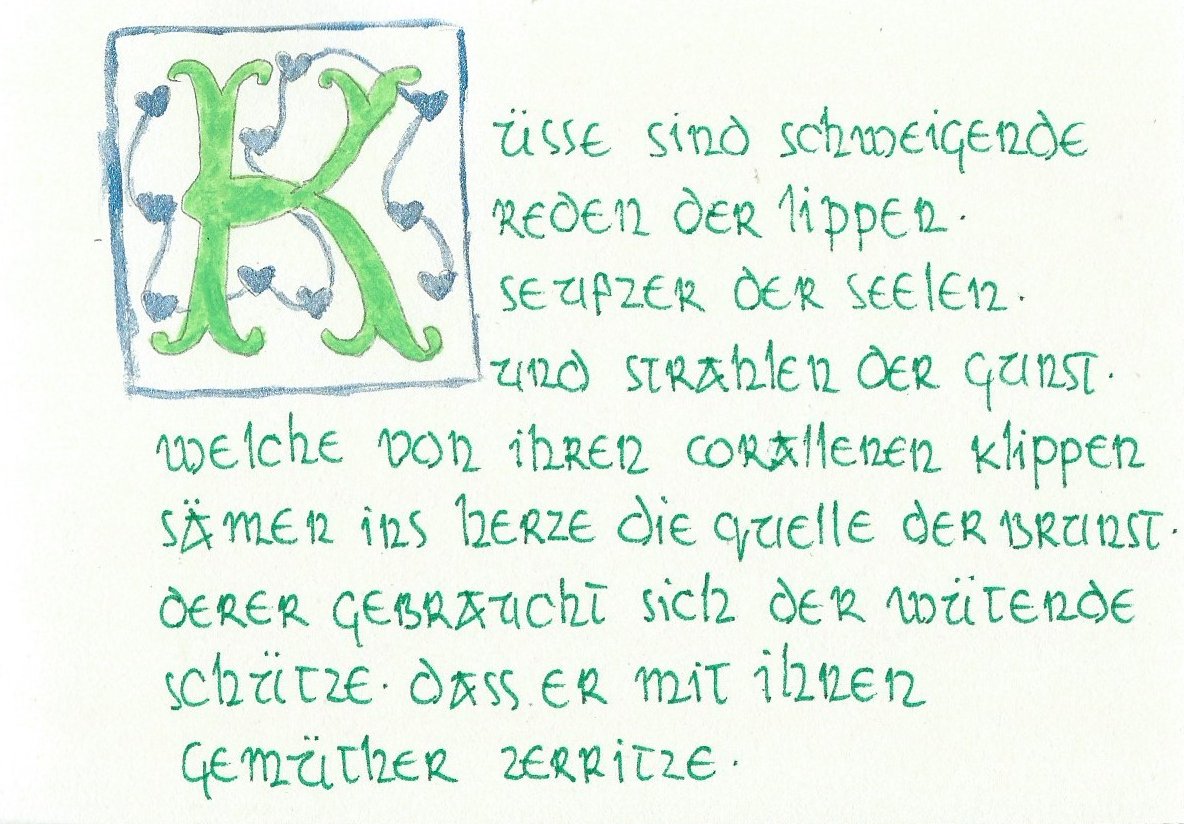 Küsse sind schweigende
reden der lippen.
seufzer der seelen.
und strahlen der gunst.
welche von ihren corallenen klippen
sämen ins herze die quelle der brunst.
derer gebraucht sich der wütende
schütze. dass er mit ihnen
gemüther zerritze.